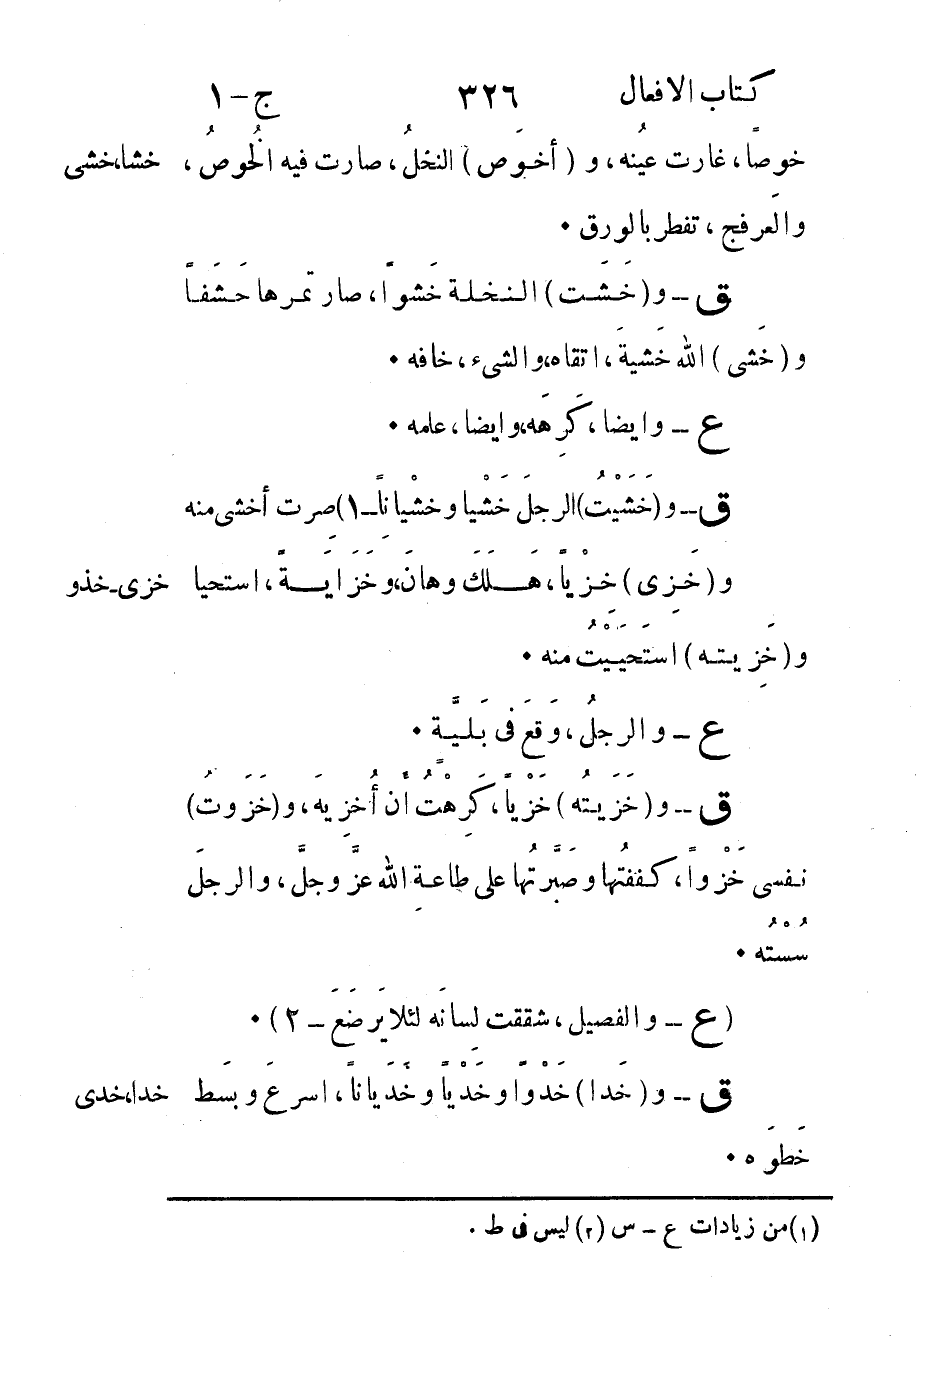 كتاب الافعال ٣٢٦ ج-١
خوصًا، غارت عينُه، و (أخوَص) النخلُ، صارت فيه الخُوصُ، خشا،خشى
والعَرفج، تفطر بالورق •
ق - و (خَشَت) النخلة خَشواً، صار تمرها حَشَفاً
و (خَشى) الله خَشيةَ، اتقاه،والشىء، خافه •
ع - وايضا، كَرِهَه،وايضا، علمه •
ق - و (خَشَيْتُ) الرجلَ خَشْيا وخشْيِاناً - ١) صِرت أخشى منه
و (خَزِى) خِزْياً، هَلَكَ وهانَ،وخَزَايَةً، استحيا خزى-خذو
و (خَزِيته) استَحيَيْتُ منه •
ع - والرجلُ، وَقَعَ فى بَليَّة •
ق - و (خَزَيتُه) خَزْياً، كَرِهْتُ أن أُخزِيَه، و (خَزَوتُ)
نفسى خَزْواً، كففتُها وصَبَّرتُها على طاعةِ الله عزَّ وجلَّ، والرجلَ
سُسْتُه •
(ع - والفصيل، شققت لِسانَه لئلا يَرضَعَ - ٢) •
ق - و (خَدا) خَدْوًا وخَدْياً وخَدَياناً، اسرعَ وبسَط خدا،خدى
خَطوَه •
(١) من زيادات ع - س (٢) ليس فى ط .